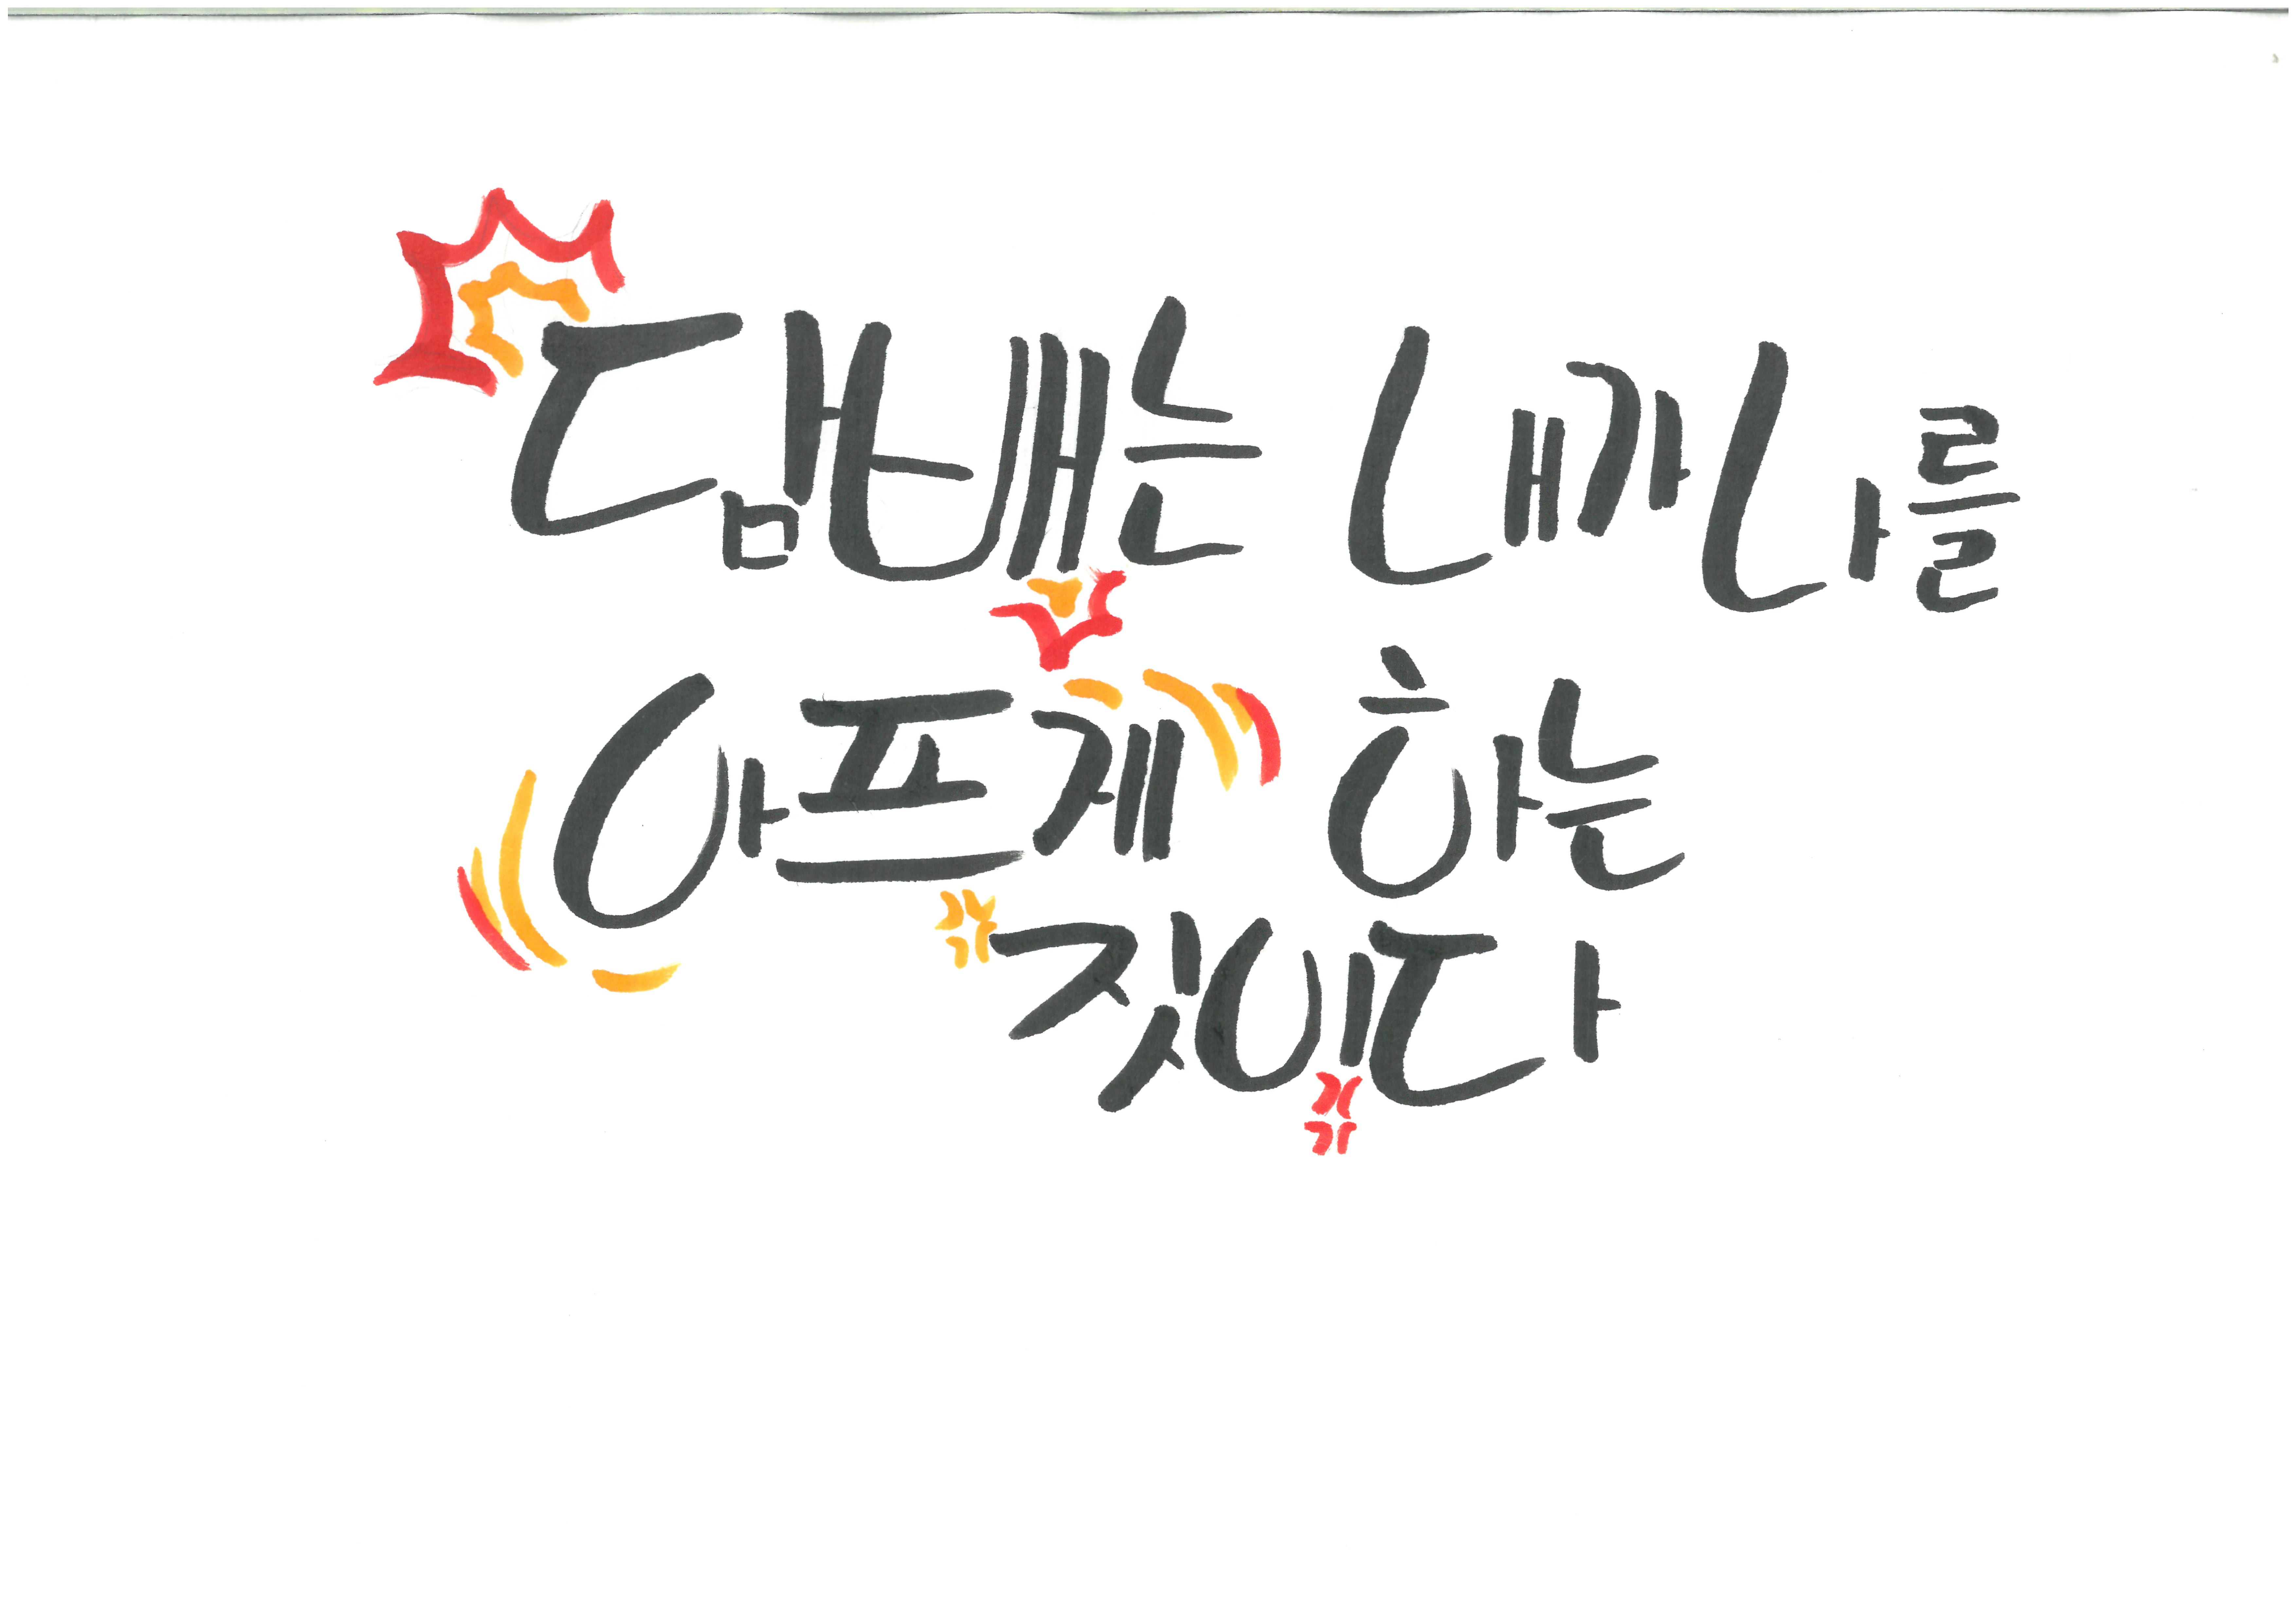 담배는 내가 나를
아프게 하는
짓이다